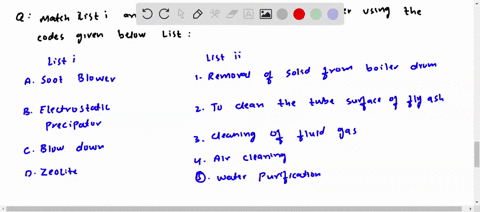 Q: Match List i an er using the
codes given below List :
List i
List ii
A. Soot Blower
1. Removal of solid from boiler drum
B. Electrostatic
Precipator
2. To clean the tube surface of fly ash
3. cleaning of fluid gas
C. Blow down
4. Air cleaning
D. Zeolite
5. Water Purification